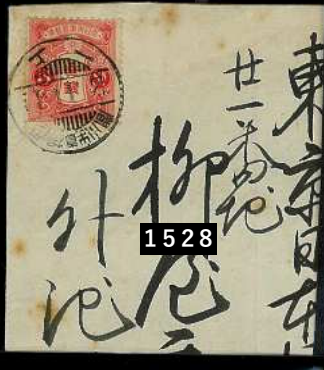 東京日本
廿一番地
柳屋
外池
1528